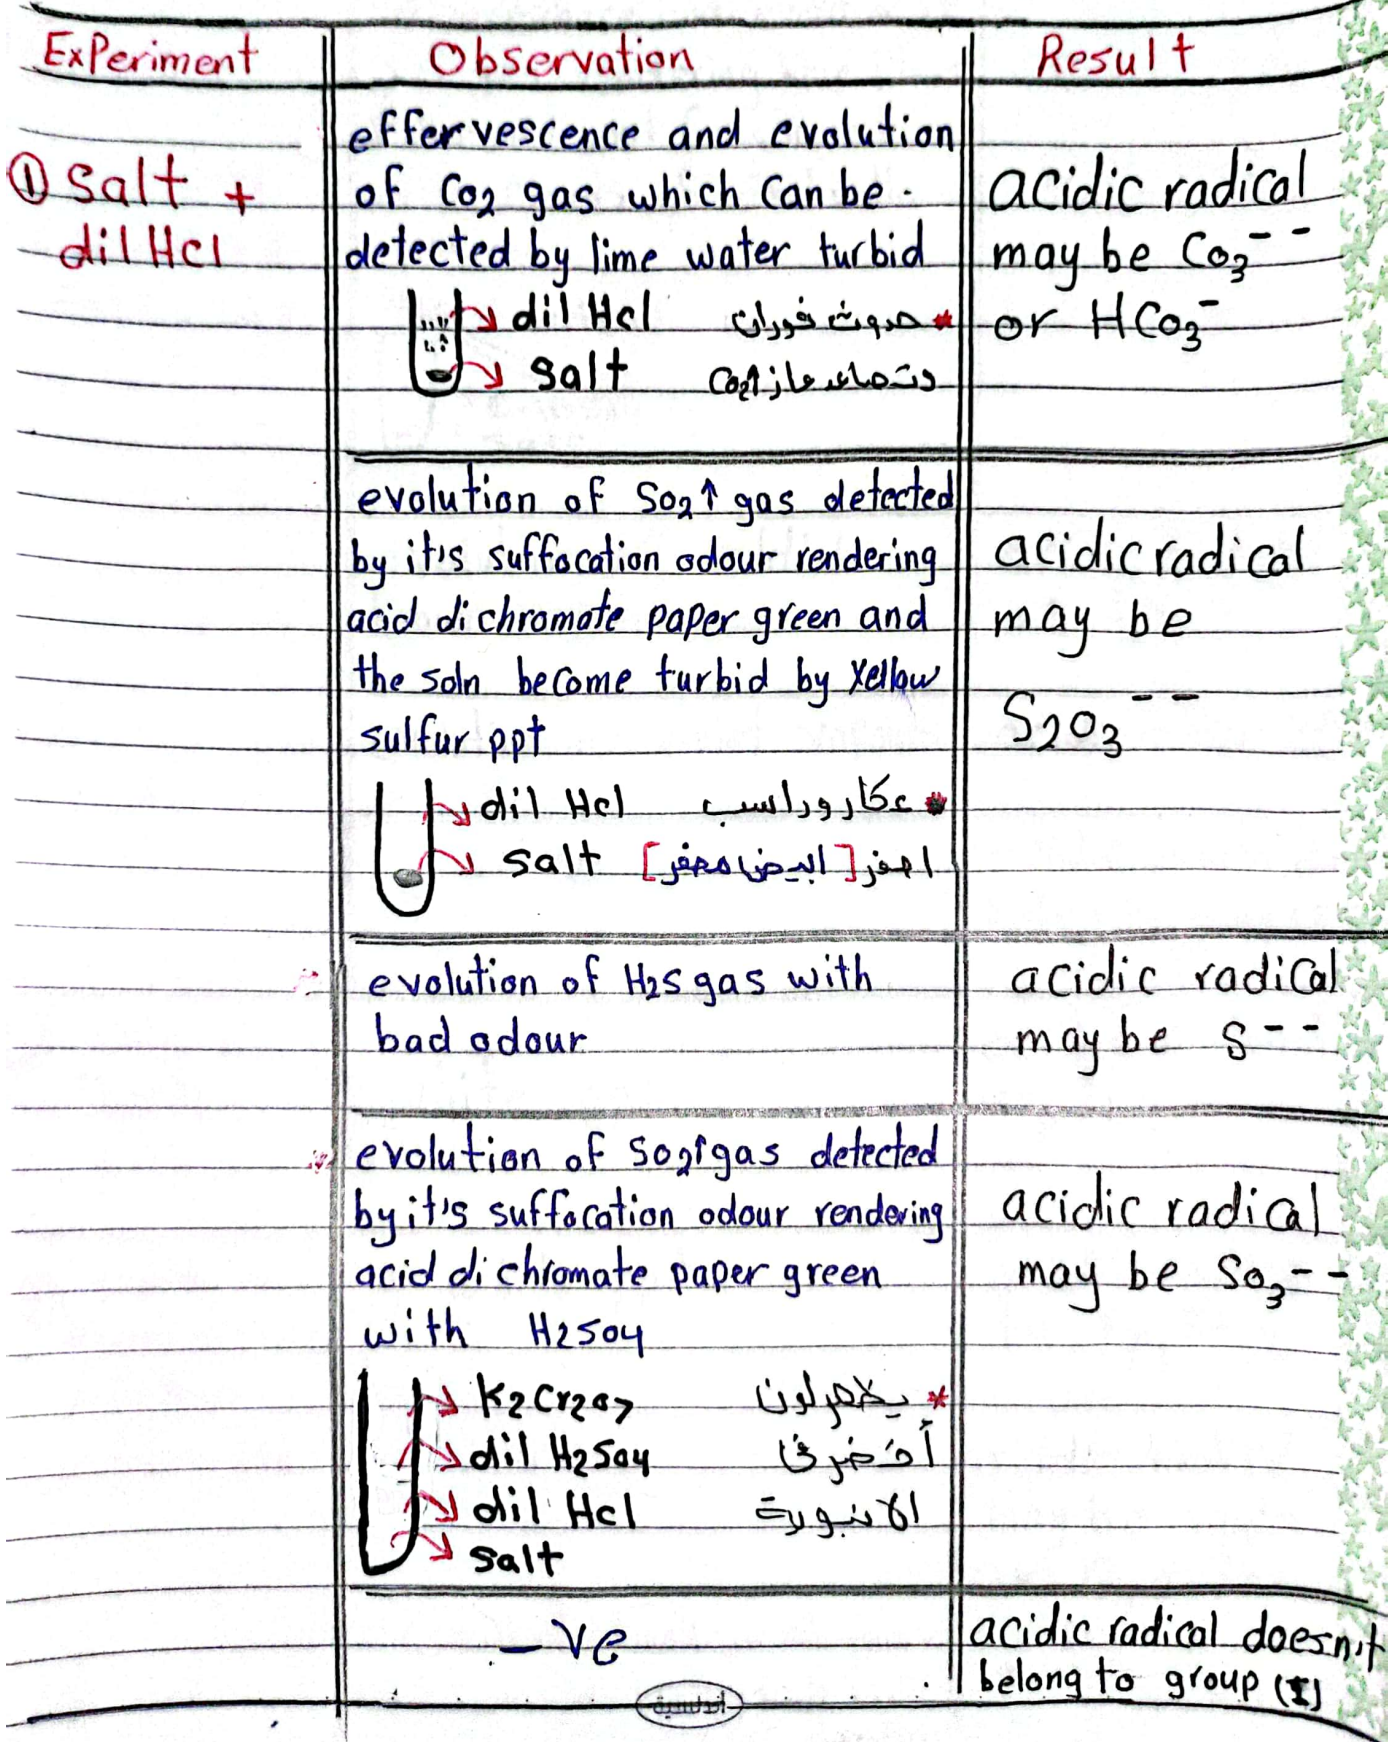 Experiment
Observation
Result
① Salt +
dil Hcl
effervescence and evolution
of Co2 gas which Can be
detected by lime water turbid
dil Hcl
Salt
* صوت فوران
وتصاعد غاز Co2↑
acidic radical
may be Co3--
or HCo3-
evolution of So2↑ gas detected
by it's suffocation odour rendering
acid dichromate paper green and
the soln become turbid by Yellow
sulfur ppt
dil Hcl
Salt
* عكار وراسب
اصفر [ابيض مصفر]
acidic radical
may be
S2O3--
evolution of H2S gas with
bad odour
acidic radical
may be S--
evolution of So2↑ gas detected
by it's suffocation odour rendering
acid dichromate paper green
with H2So4
K2Cr2o7
dil H2So4
dil Hcl
Salt
* يظهر لون
أخضر فى
الانبوبة
acidic radical
may be So3--
-ve
acidic radical doesn't
belong to group (I)
أندلسية